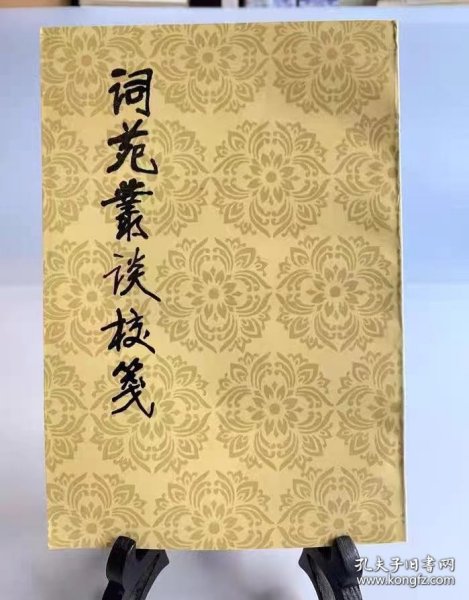 词苑叢談校箋
孔夫子旧书网
www.kongfz.com